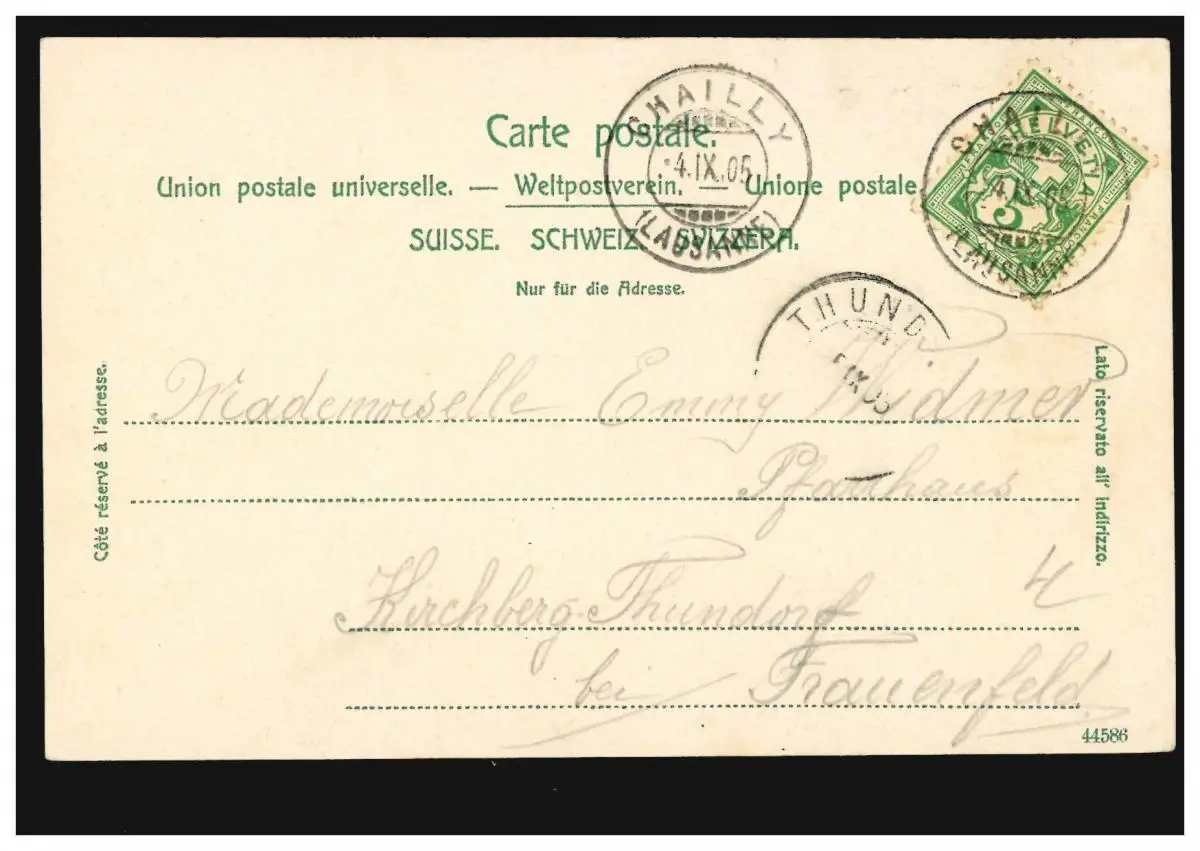 Carte postale.
Union postale universelle. — Weltpostverein. — Unione postale
SUISSE. SCHWEIZ. SVIZZERA.
Nur für die Adresse.
CHAILLY
4.IX.05
(LAUSANNE)
FRANCO HELVETIA FRANCO
5
CHAILLY
4.IX.05
(LAUSANNE)
THUND
IX 05
Côté réservé à l'adresse.
Lato riservato all' indirizzo.
Mademoiselle Emmy Widmer
Pfarrhaus
Kirchberg-Thundorf
bei Frauenfeld
44586